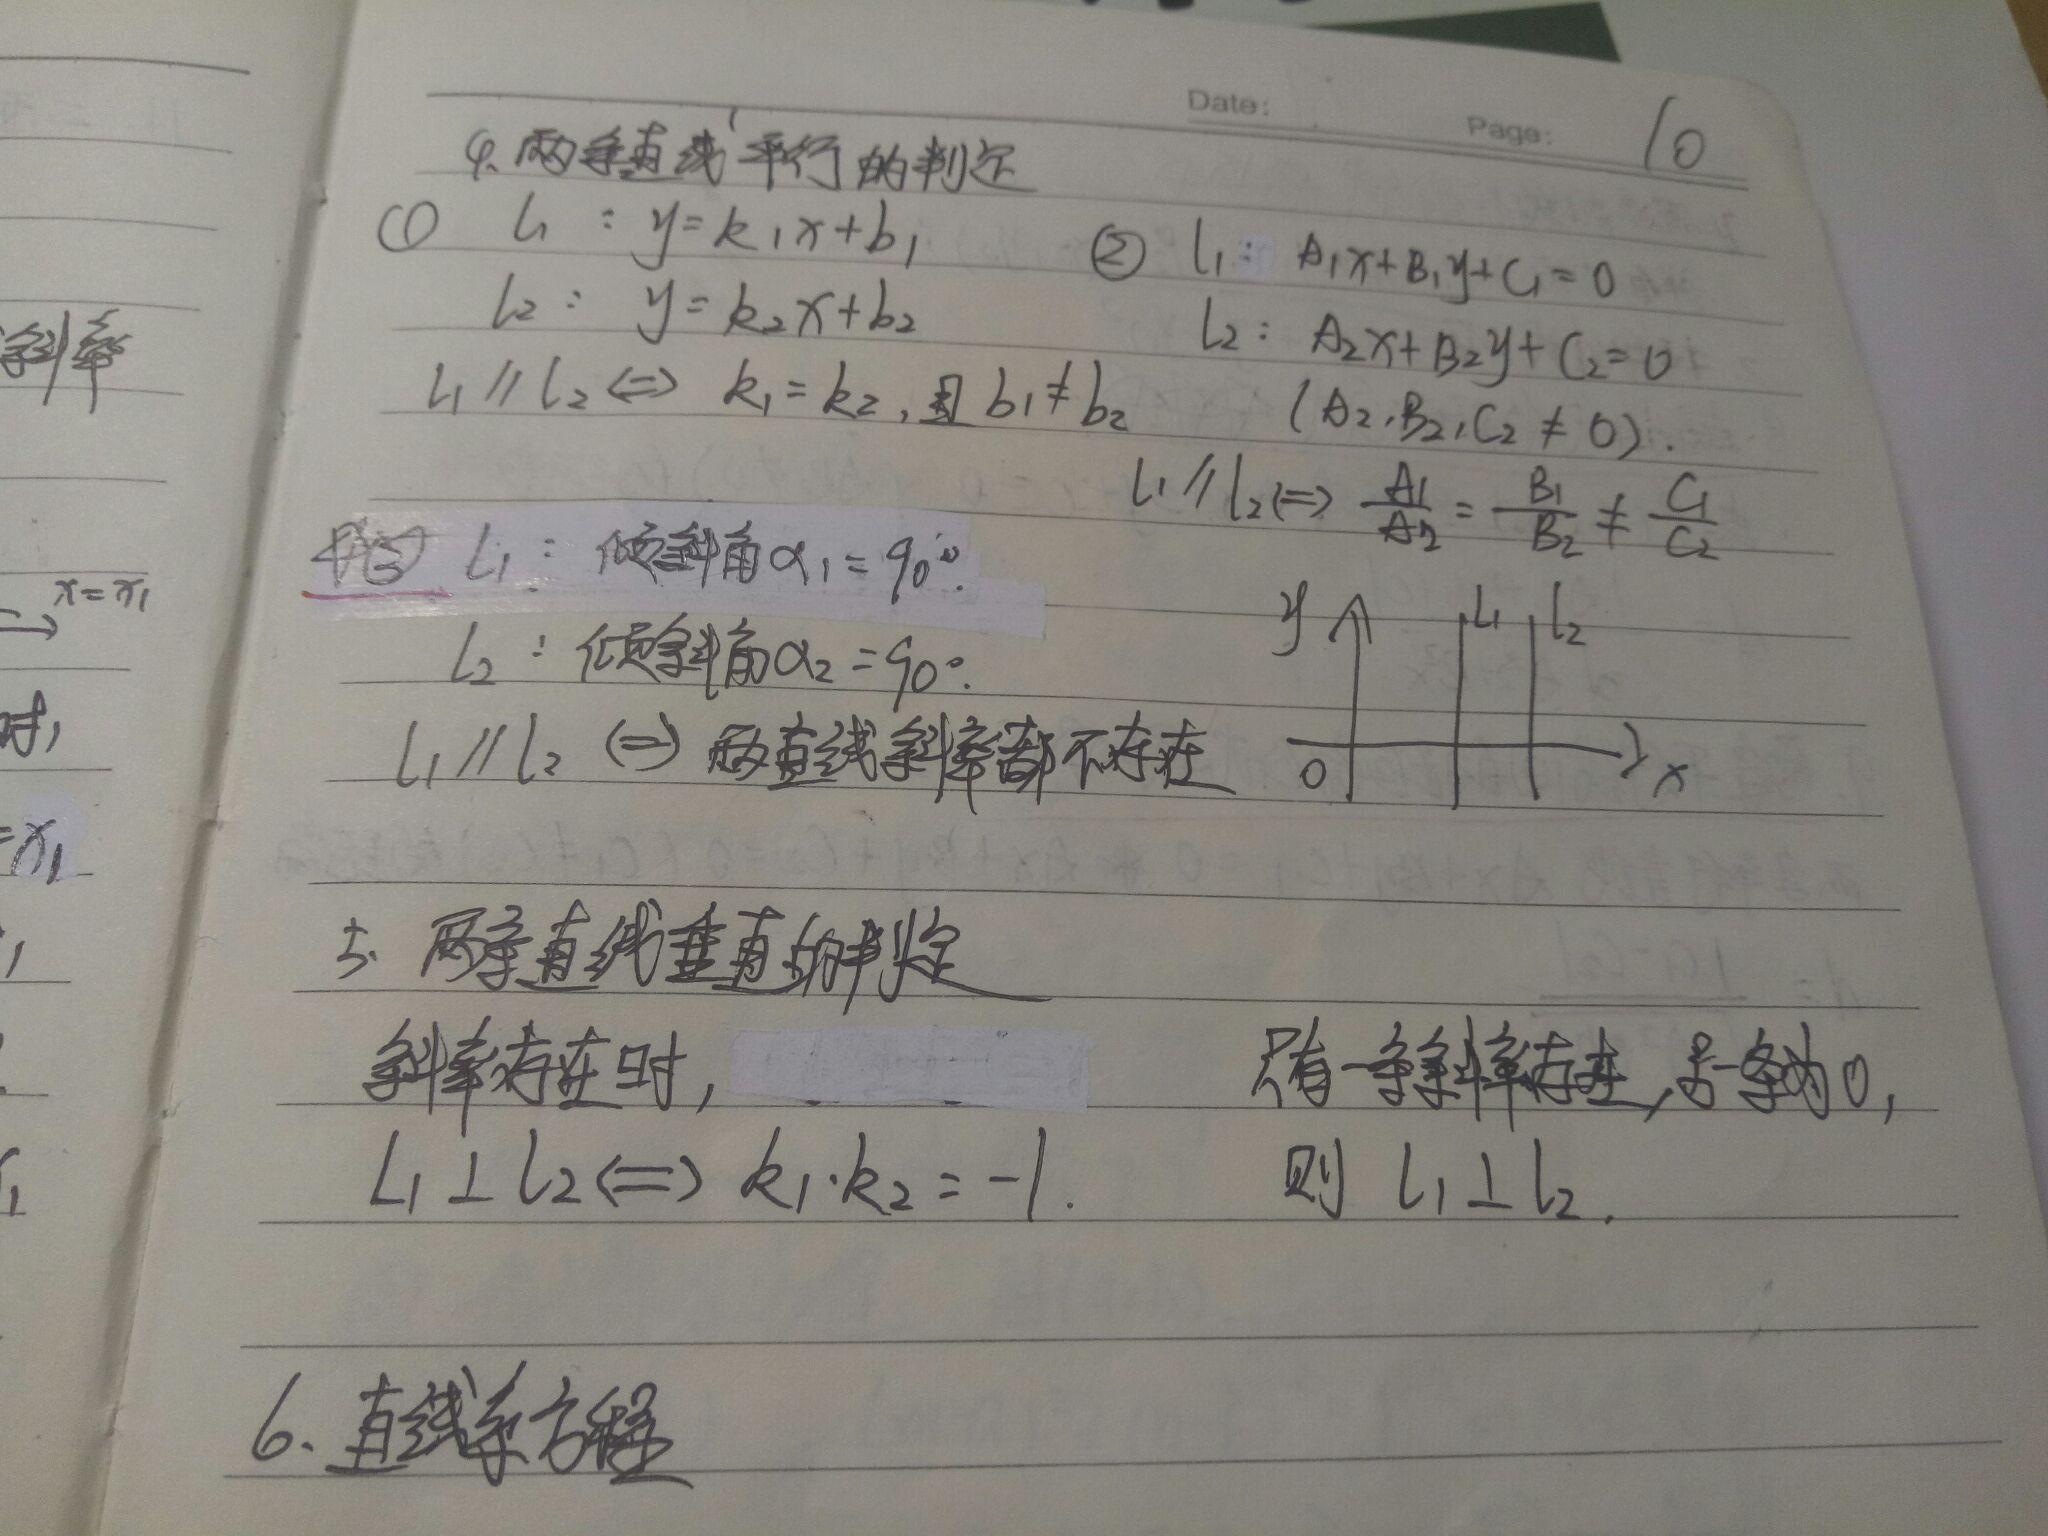 Date:
Page: 10
4. 两条直线平行的判定
① l₁ : y=k₁x+b₁
l₂ : y=k₂x+b₂
l₁∥l₂ <=> k₁=k₂, 且 b₁≠b₂
② l₁: A₁x+B₁y+C₁=0
l₂: A₂x+B₂y+C₂=0
(A₂,B₂,C₂≠0).
l₁∥l₂<=> A₁/A₂ = B₁/B₂ ≠ C₁/C₂
③ l₁ : 倾斜角α₁=90°.
l₂ : 倾斜角α₂=90°.
l₁∥l₂ <=> 两直线斜率都不存在
y l₁ l₂
0 x
5. 两条直线垂直的判定
斜率存在时,
l₁⊥l₂<=> k₁·k₂=-1.
只有一条斜率存在,另一条为0,
则 l₁⊥l₂.
6. 直线系方程
斜率
x=x₁
时,
=x₁